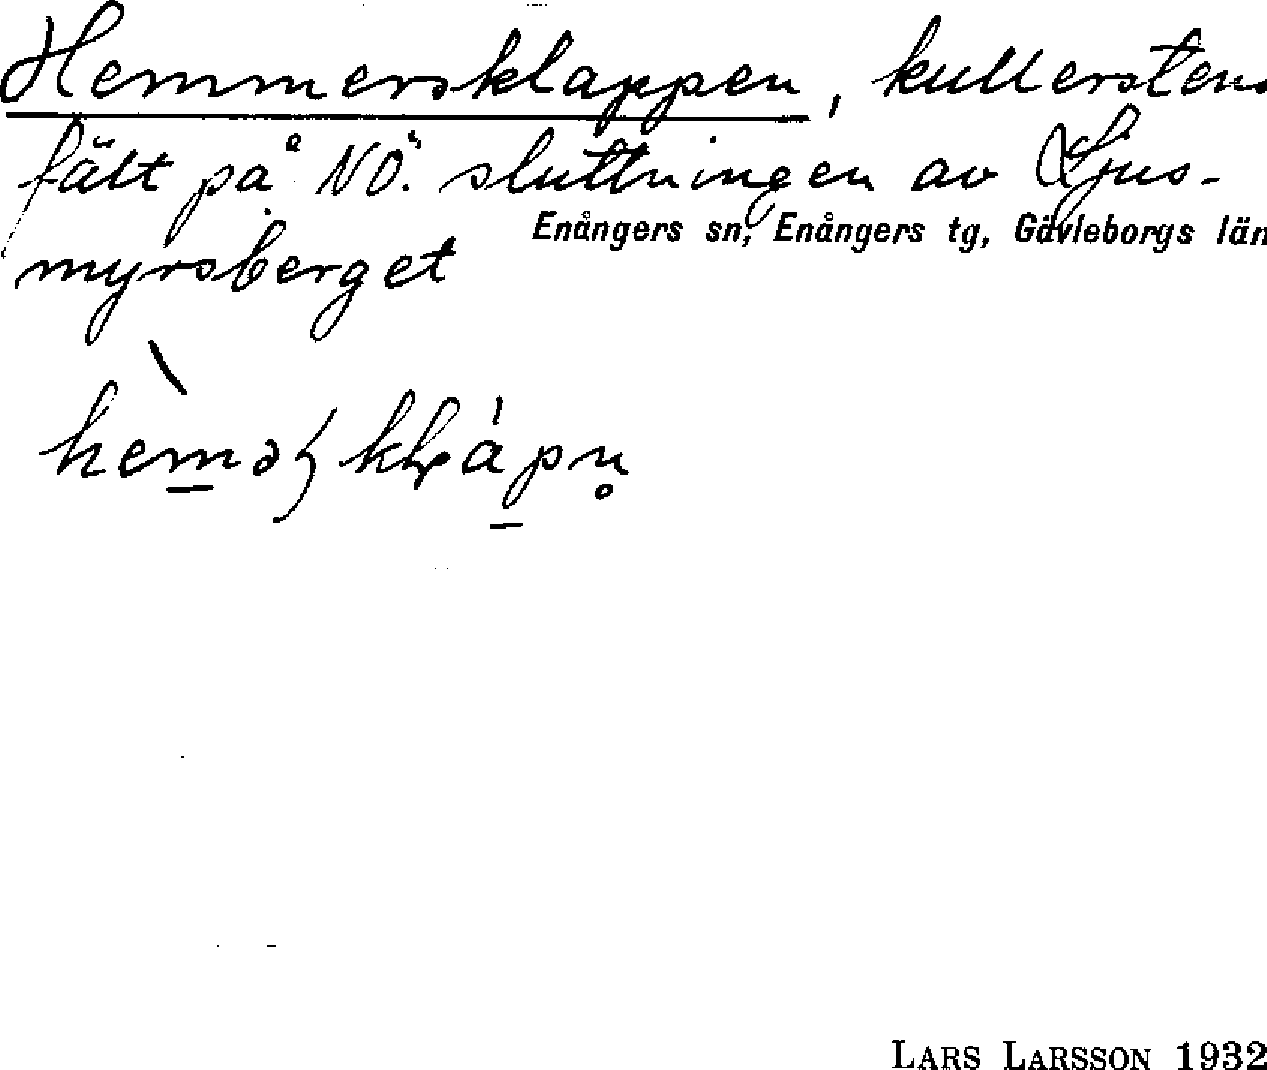 Hemmersklappen, kullerstens
fält på NÖ. sluttningen av Ljus-
Enångers sn, Enångers tg, Gävleborgs län
myrsberget
LARS LARSSON 1932